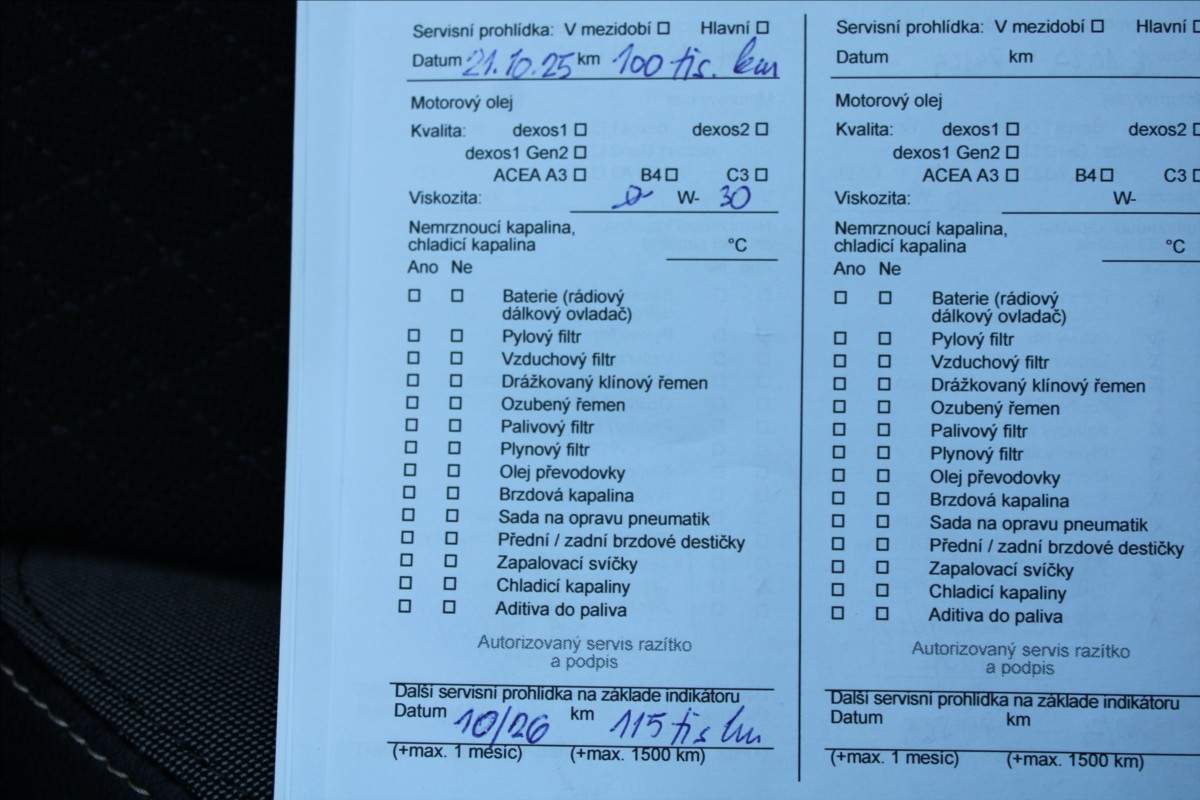 Servisní prohlídka: V mezidobí Hlavní
Datum 21.10.25 km 100 tis. km
Motorový olej
Kvalita: dexos1 dexos2
dexos1 Gen2
ACEA A3 B4 C3
Viskozita: 0 W- 30
Nemrznoucí kapalina,
chladicí kapalina °C
Ano Ne
Baterie (rádiový
dálkový ovladač)
Pylový filtr
Vzduchový filtr
Drážkovaný klínový řemen
Ozubený řemen
Palivový filtr
Plynový filtr
Olej převodovky
Brzdová kapalina
Sada na opravu pneumatik
Přední / zadní brzdové destičky
Zapalovací svíčky
Chladicí kapaliny
Aditiva do paliva
Autorizovaný servis razítko
a podpis
Další servisní prohlídka na základe indikátoru
Datum 10/26 km 115 tis km
(+max. 1 mesíc) (+max. 1500 km)
Servisní prohlídka: V mezidobí Hlavní
Datum km
Motorový olej
Kvalita: dexos1 dexos2
dexos1 Gen2
ACEA A3 B4 C3
Viskozita: W-
Nemrznoucí kapalina,
chladicí kapalina °C
Ano Ne
Baterie (rádiový
dálkový ovladač)
Pylový filtr
Vzduchový filtr
Drážkovaný klínový řemen
Ozubený řemen
Palivový filtr
Plynový filtr
Olej převodovky
Brzdová kapalina
Sada na opravu pneumatik
Přední / zadní brzdové destičky
Zapalovací svíčky
Chladicí kapaliny
Aditiva do paliva
Autorizovaný servis razítko
a podpis
Další servisní prohlídka na základe indikátoru
Datum km
(+max. 1 měsíc) (+max. 1500 km)